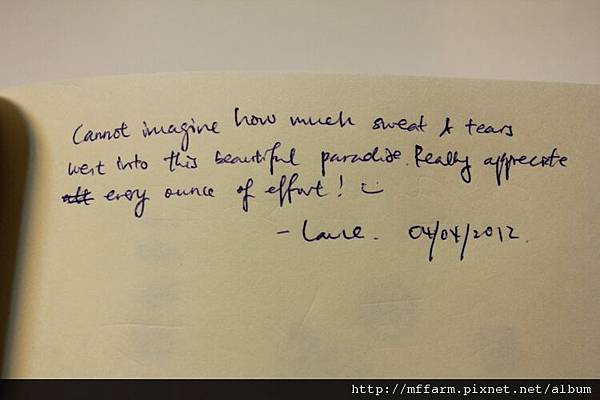 Cannot imagine how much sweat & tears
went into this beautiful paradise. Really appreciate
every ounce of effort! :)
- 04/04/2012.
http://mffarm.pixnet.net/album